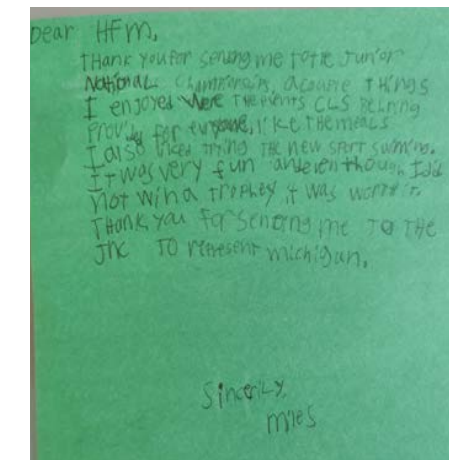 Dear HFM,
THank you for sening me to the Junior
National Championships, a couple THings
I enjoyed were The events CLS Behing
for everyone, like The meals
I also liked trying THe new sport swimming.
IT was very fun and even though I did
not win a Trophey it was worth it.
THank you for sending me To THe
JNC To represent michigan.
Sincerily,
miles